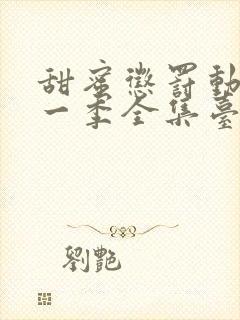 甜蜜懲罰動
一季全集臺
劉艷